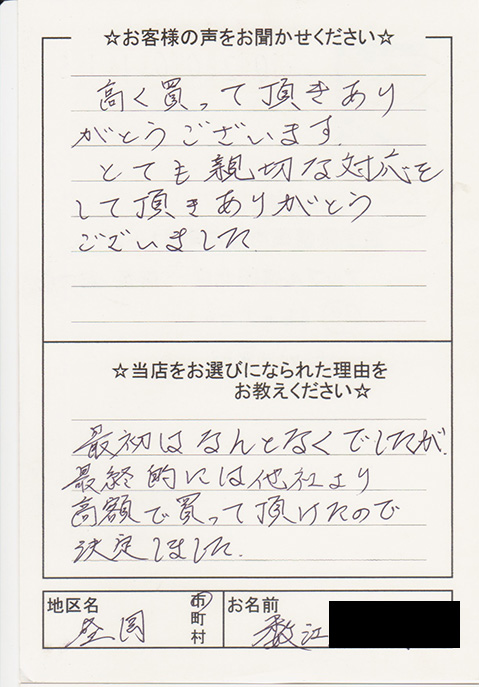 ☆お客様の声をお聞かせください☆
高く買って頂きあり
がとうございます.
とても親切な対応を
して頂きありがとう
ございました
☆当店をお選びになられた理由を
お教えください☆
最初はなんとなくでしたが
最終的には他社より
高額で買って頂けたので
決定しました.
地区名
盛岡
市
町
村
お名前
江